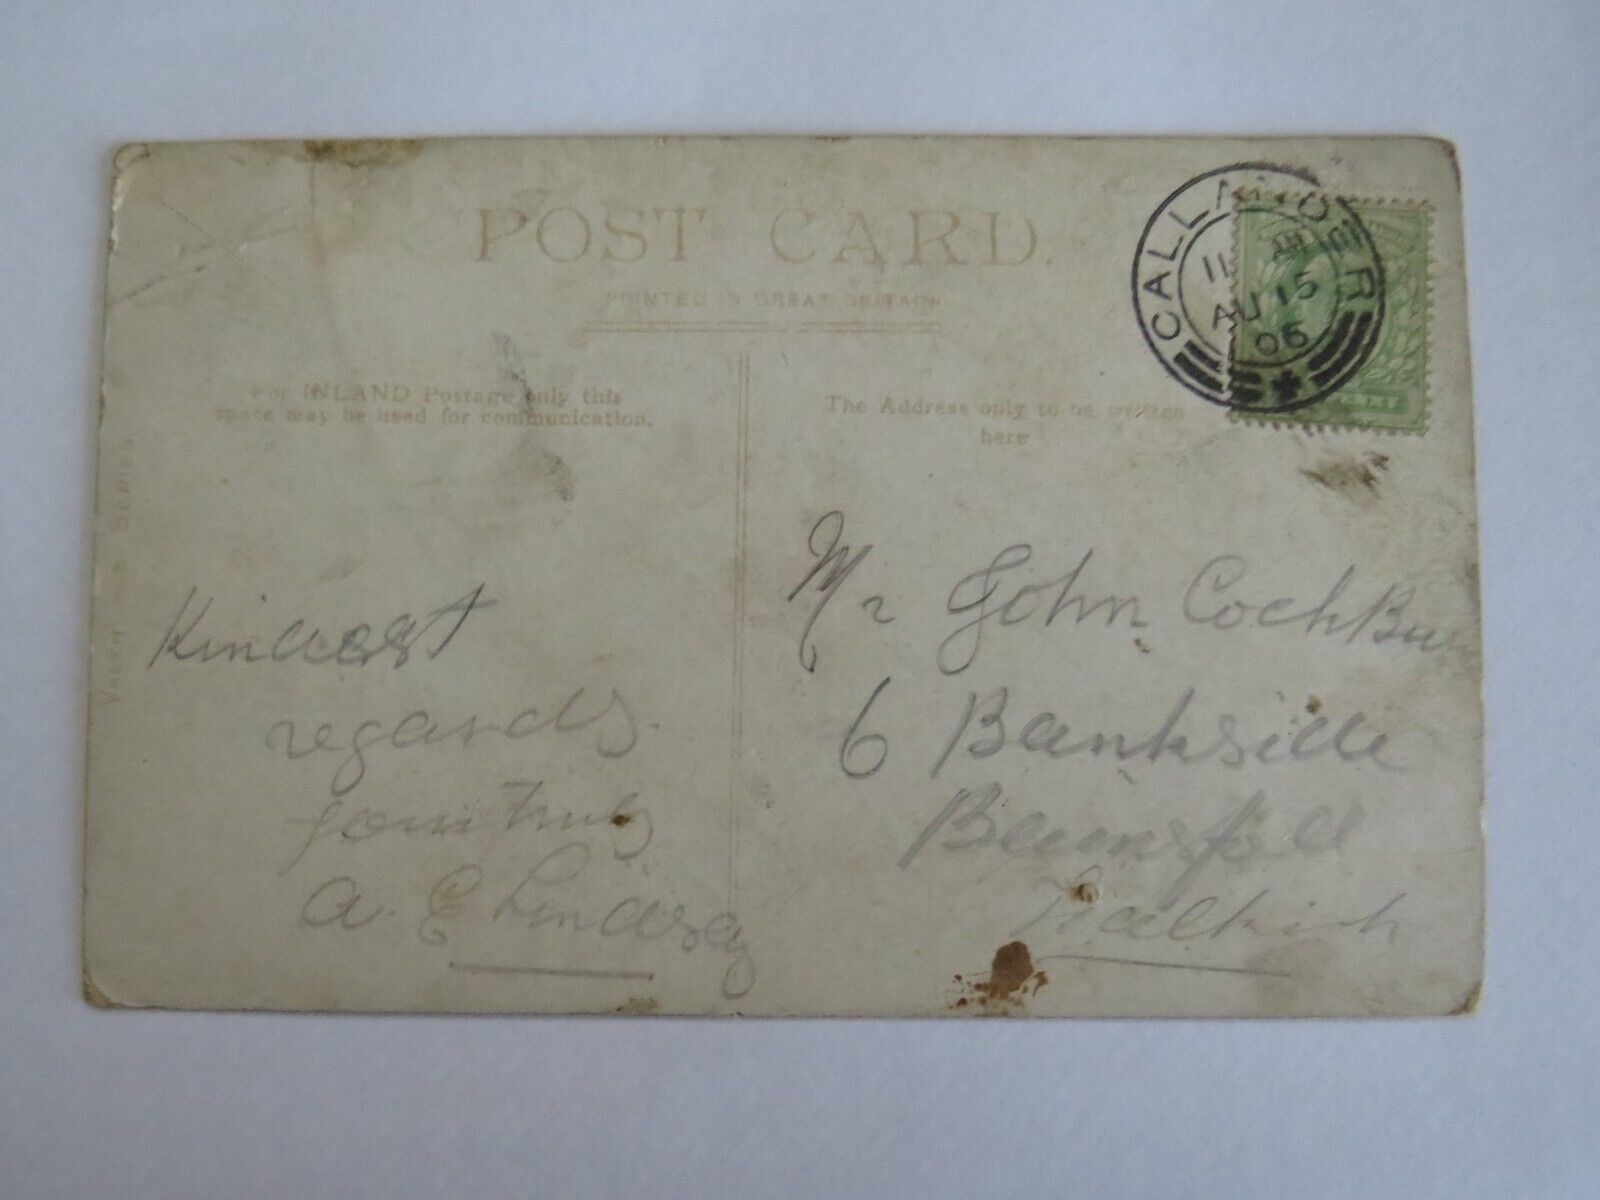 POST CARD.
PRINTED IN GREAT BRITAIN
For INLAND Postage only this
space may be used for communication.
The Address only to be written
here
VALENTINE'S SERIES
CALLANDER
11 AM
AU 15
06
PENNY
Kindest
regards
yours truly
A. E Lindsay
Mr John CochBurn
6 Bankside
Bainsford
Falkirk